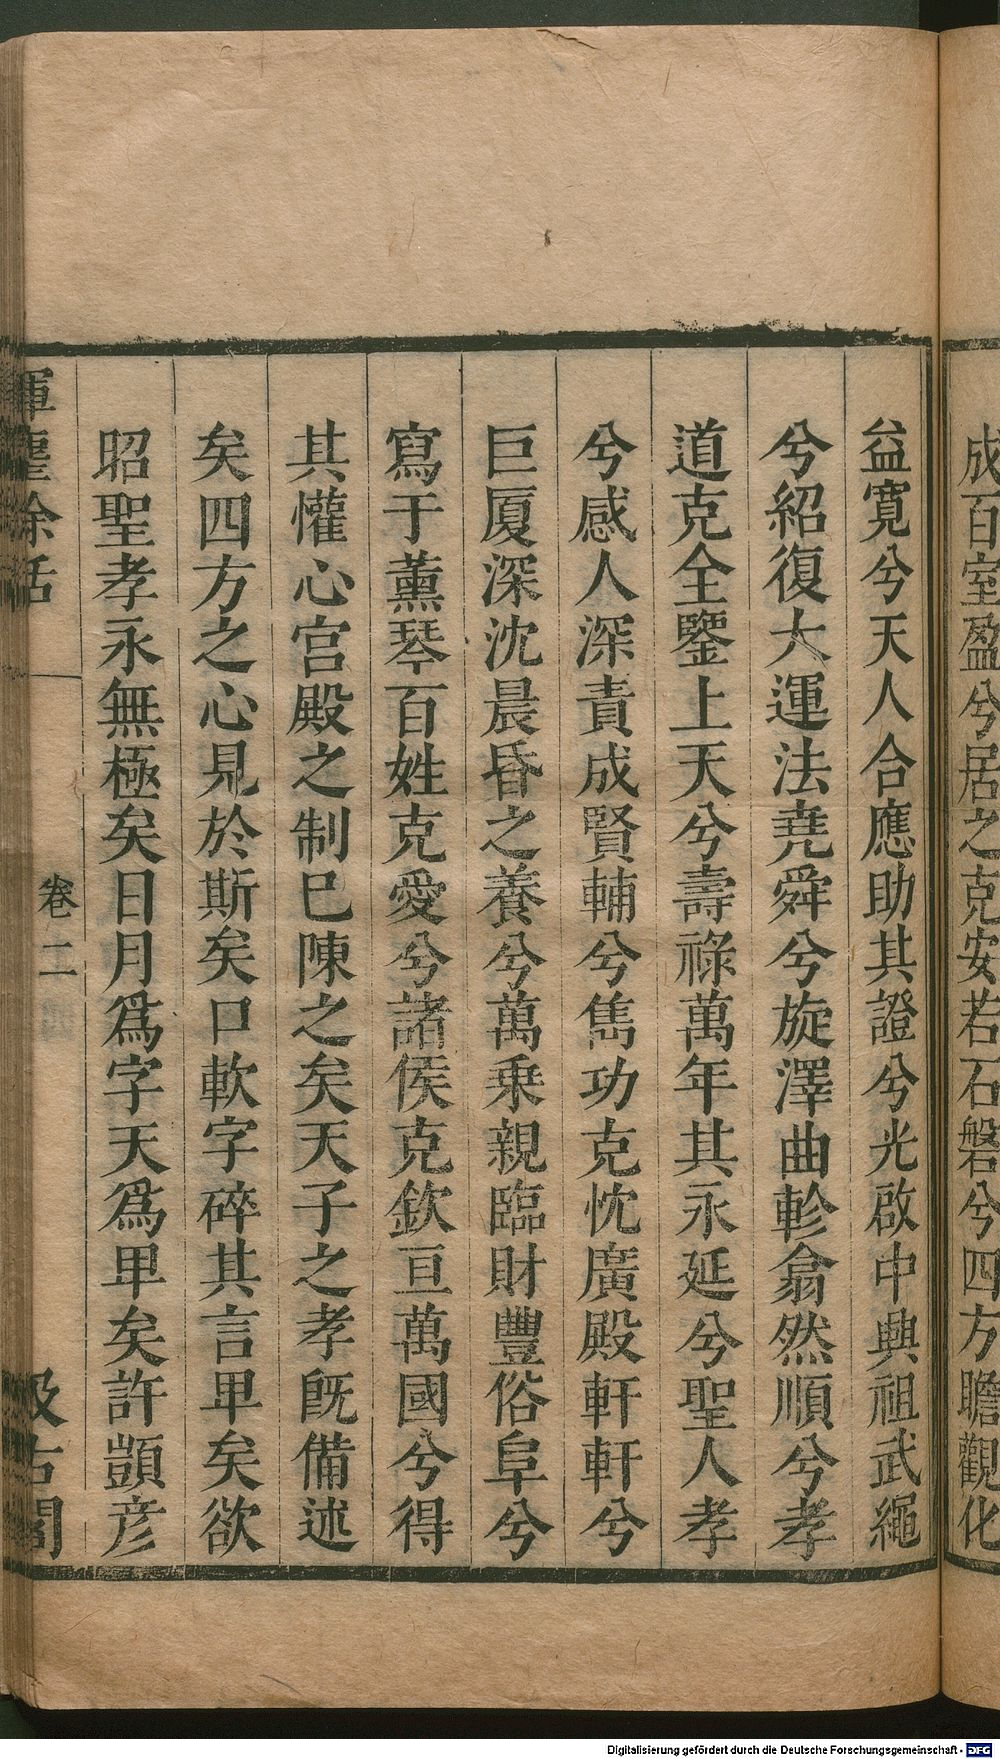 成百室盈兮居之克安若石磐兮四方瞻觀化
益寬兮天人合應助其證兮光啟中興祖武繩
兮紹復大運法堯舜兮旋澤曲軫翕然順兮孝
道克全鑒上天兮壽祿萬年其永延兮聖人孝
兮感人深責成賢輔兮雋功克忱廣殿軒軒兮
巨厦深沈晨昏之養兮萬乗親臨財豐俗阜兮
寫于薰琴百姓克愛兮諸侯克欽亘萬國兮得
其懽心宮殿之制巳陳之矣天子之孝旣備述
矣四方之心見於斯矣口軟字碎其言卑矣欲
昭聖孝永無極矣日月爲字天爲卑矣許顗彦
揮麈餘話
卷二
汲古閣
Digitalisierung gefördert durch die Deutsche Forschungsgemeinschaft - DFG